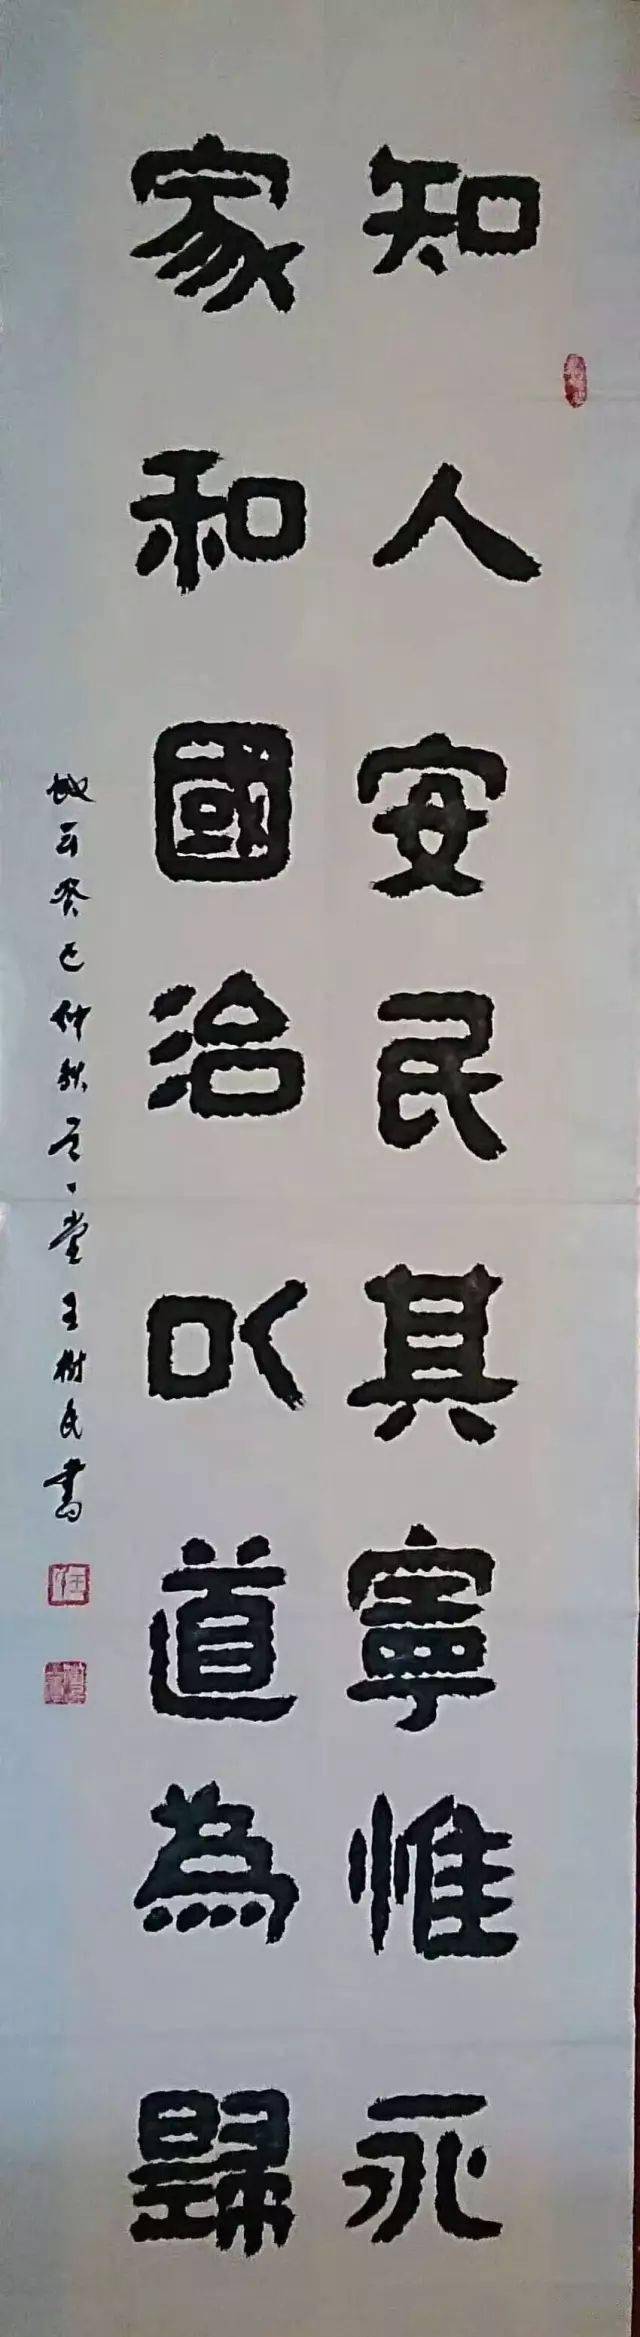 知人安民其寧惟永
家和國治以道為歸
癸巳仲秋 堂王樹民書